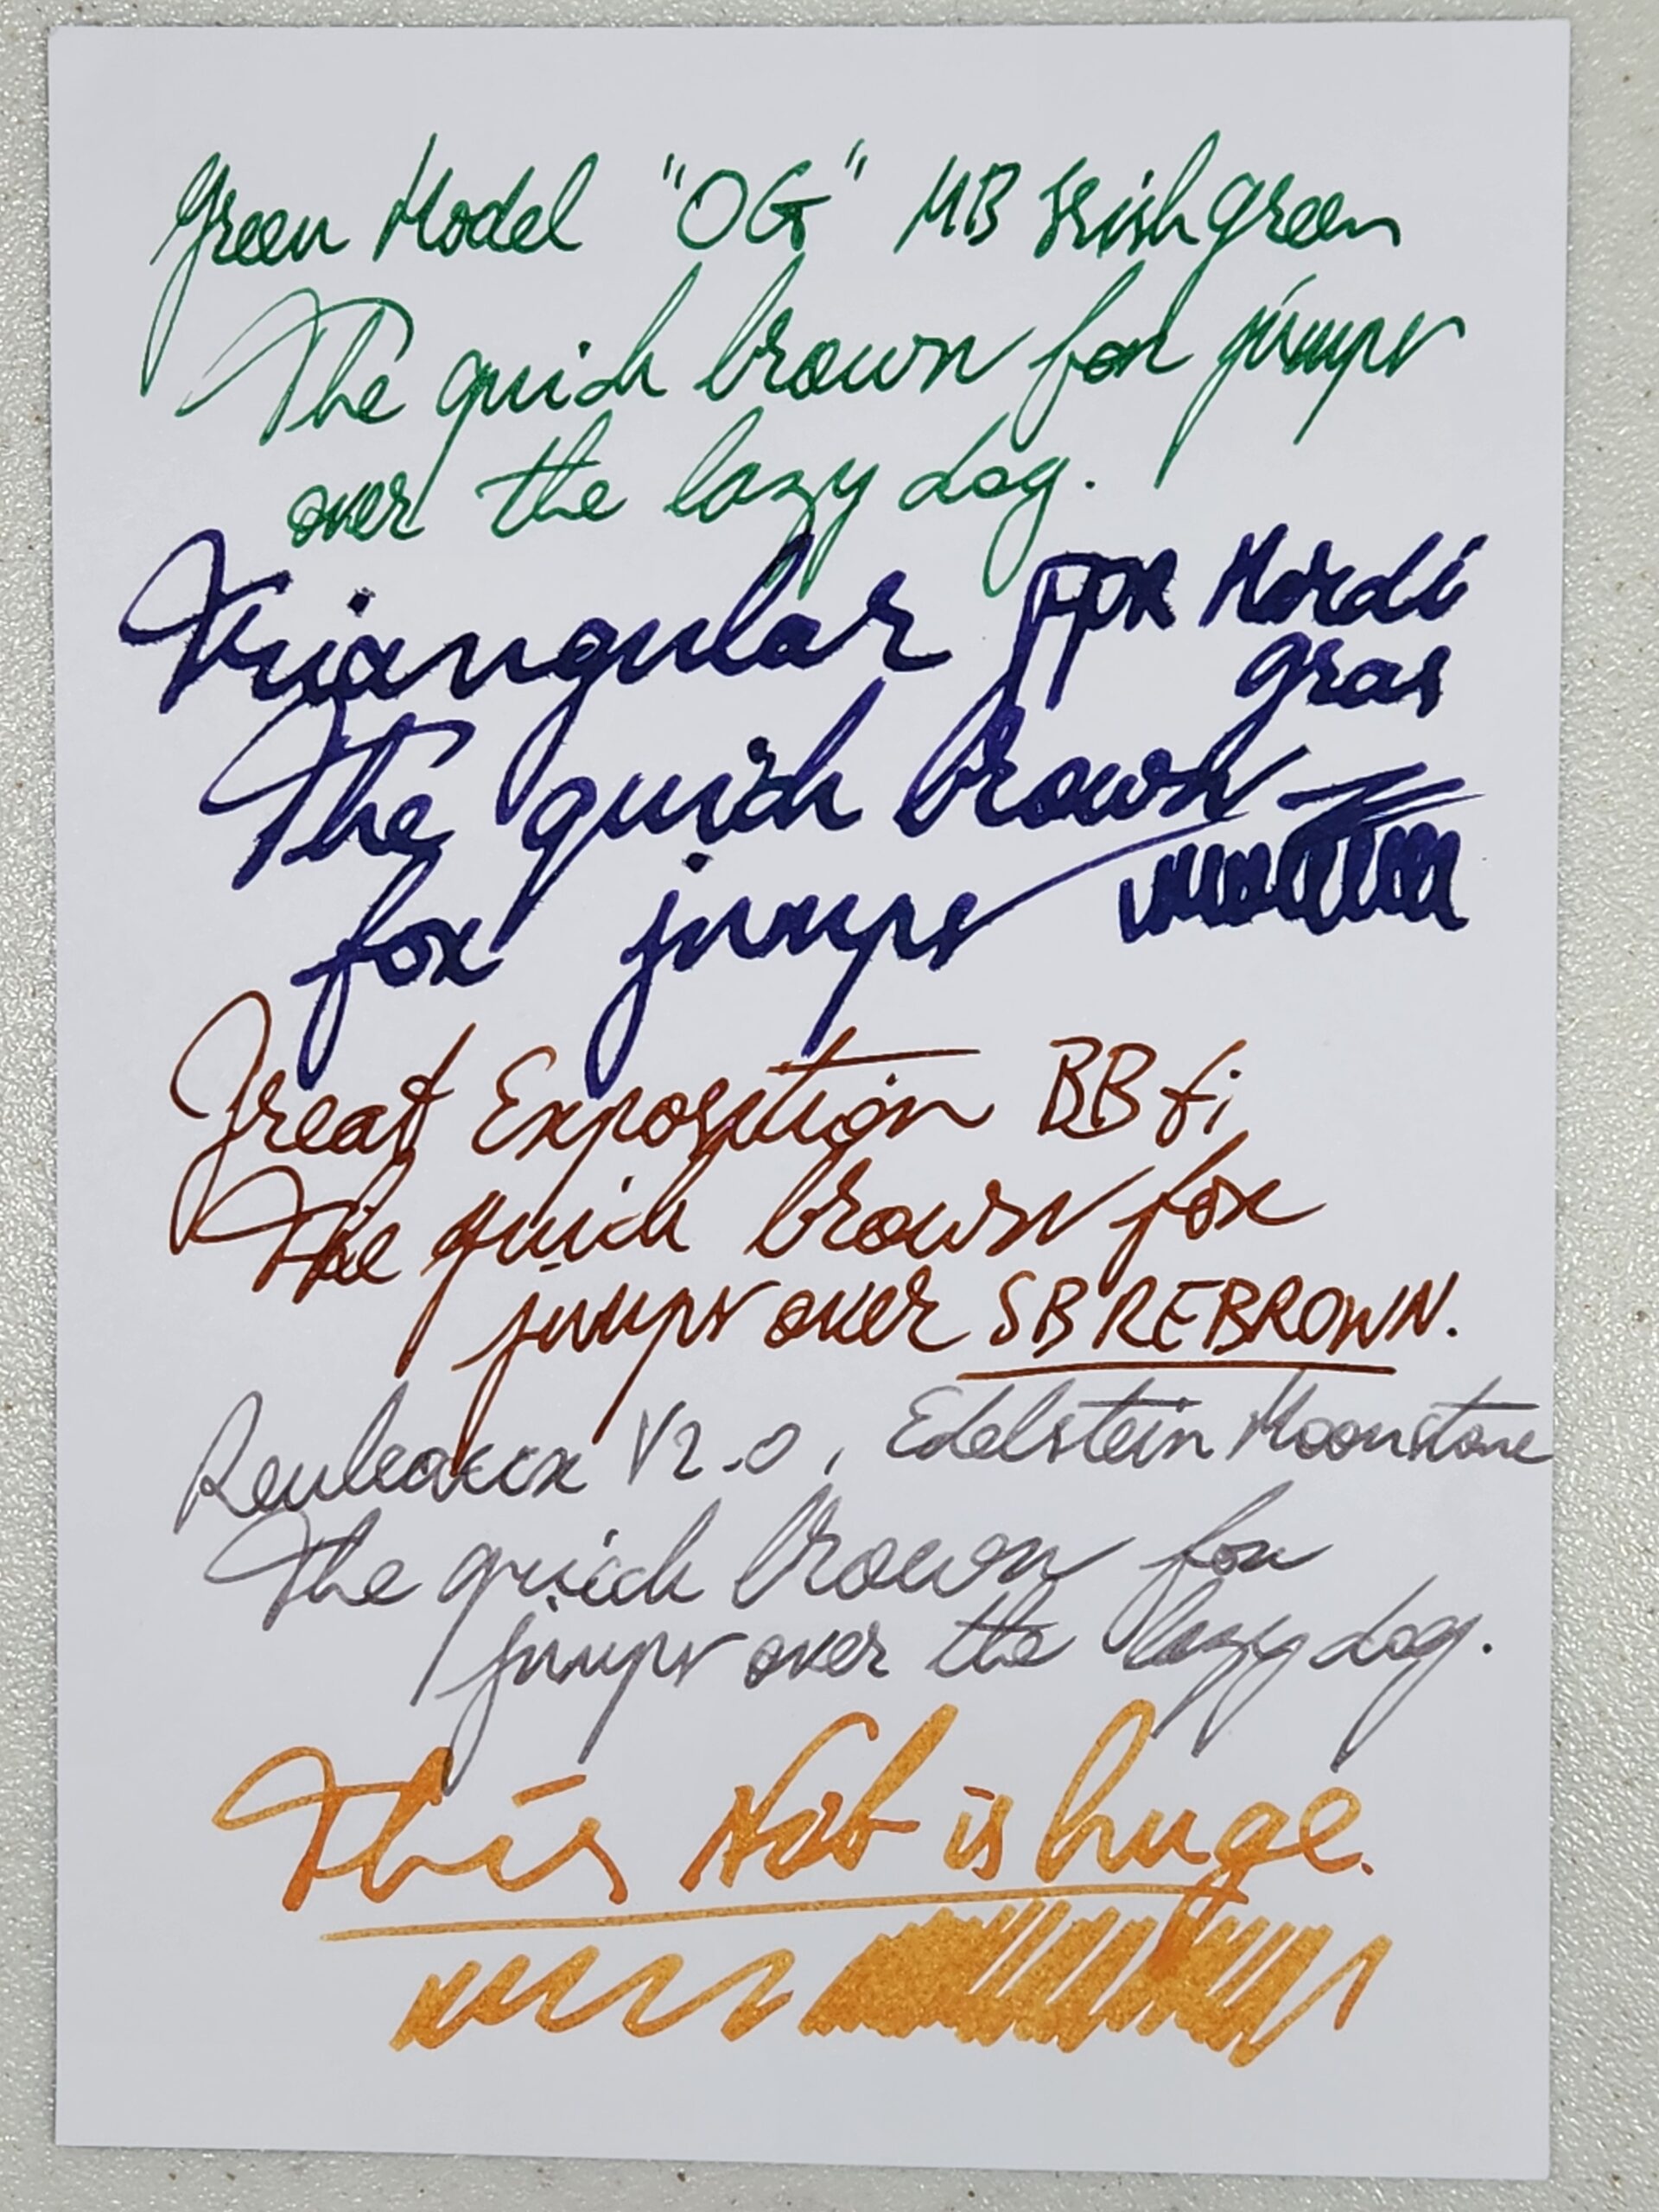 Green Model "OG" MB Irish green
The quick brown fox jumps
over the lazy dog.
Triangular FPR Mardi
gras
The quick brown
fox jumps
Great Exposition BB fi
The quick brown fox
jumps over SBREBROWN.
Reuleaux V2.0, Edelstein Moonstone
The quick brown fox
jumps over the lazy dog.
This Nib is huge.